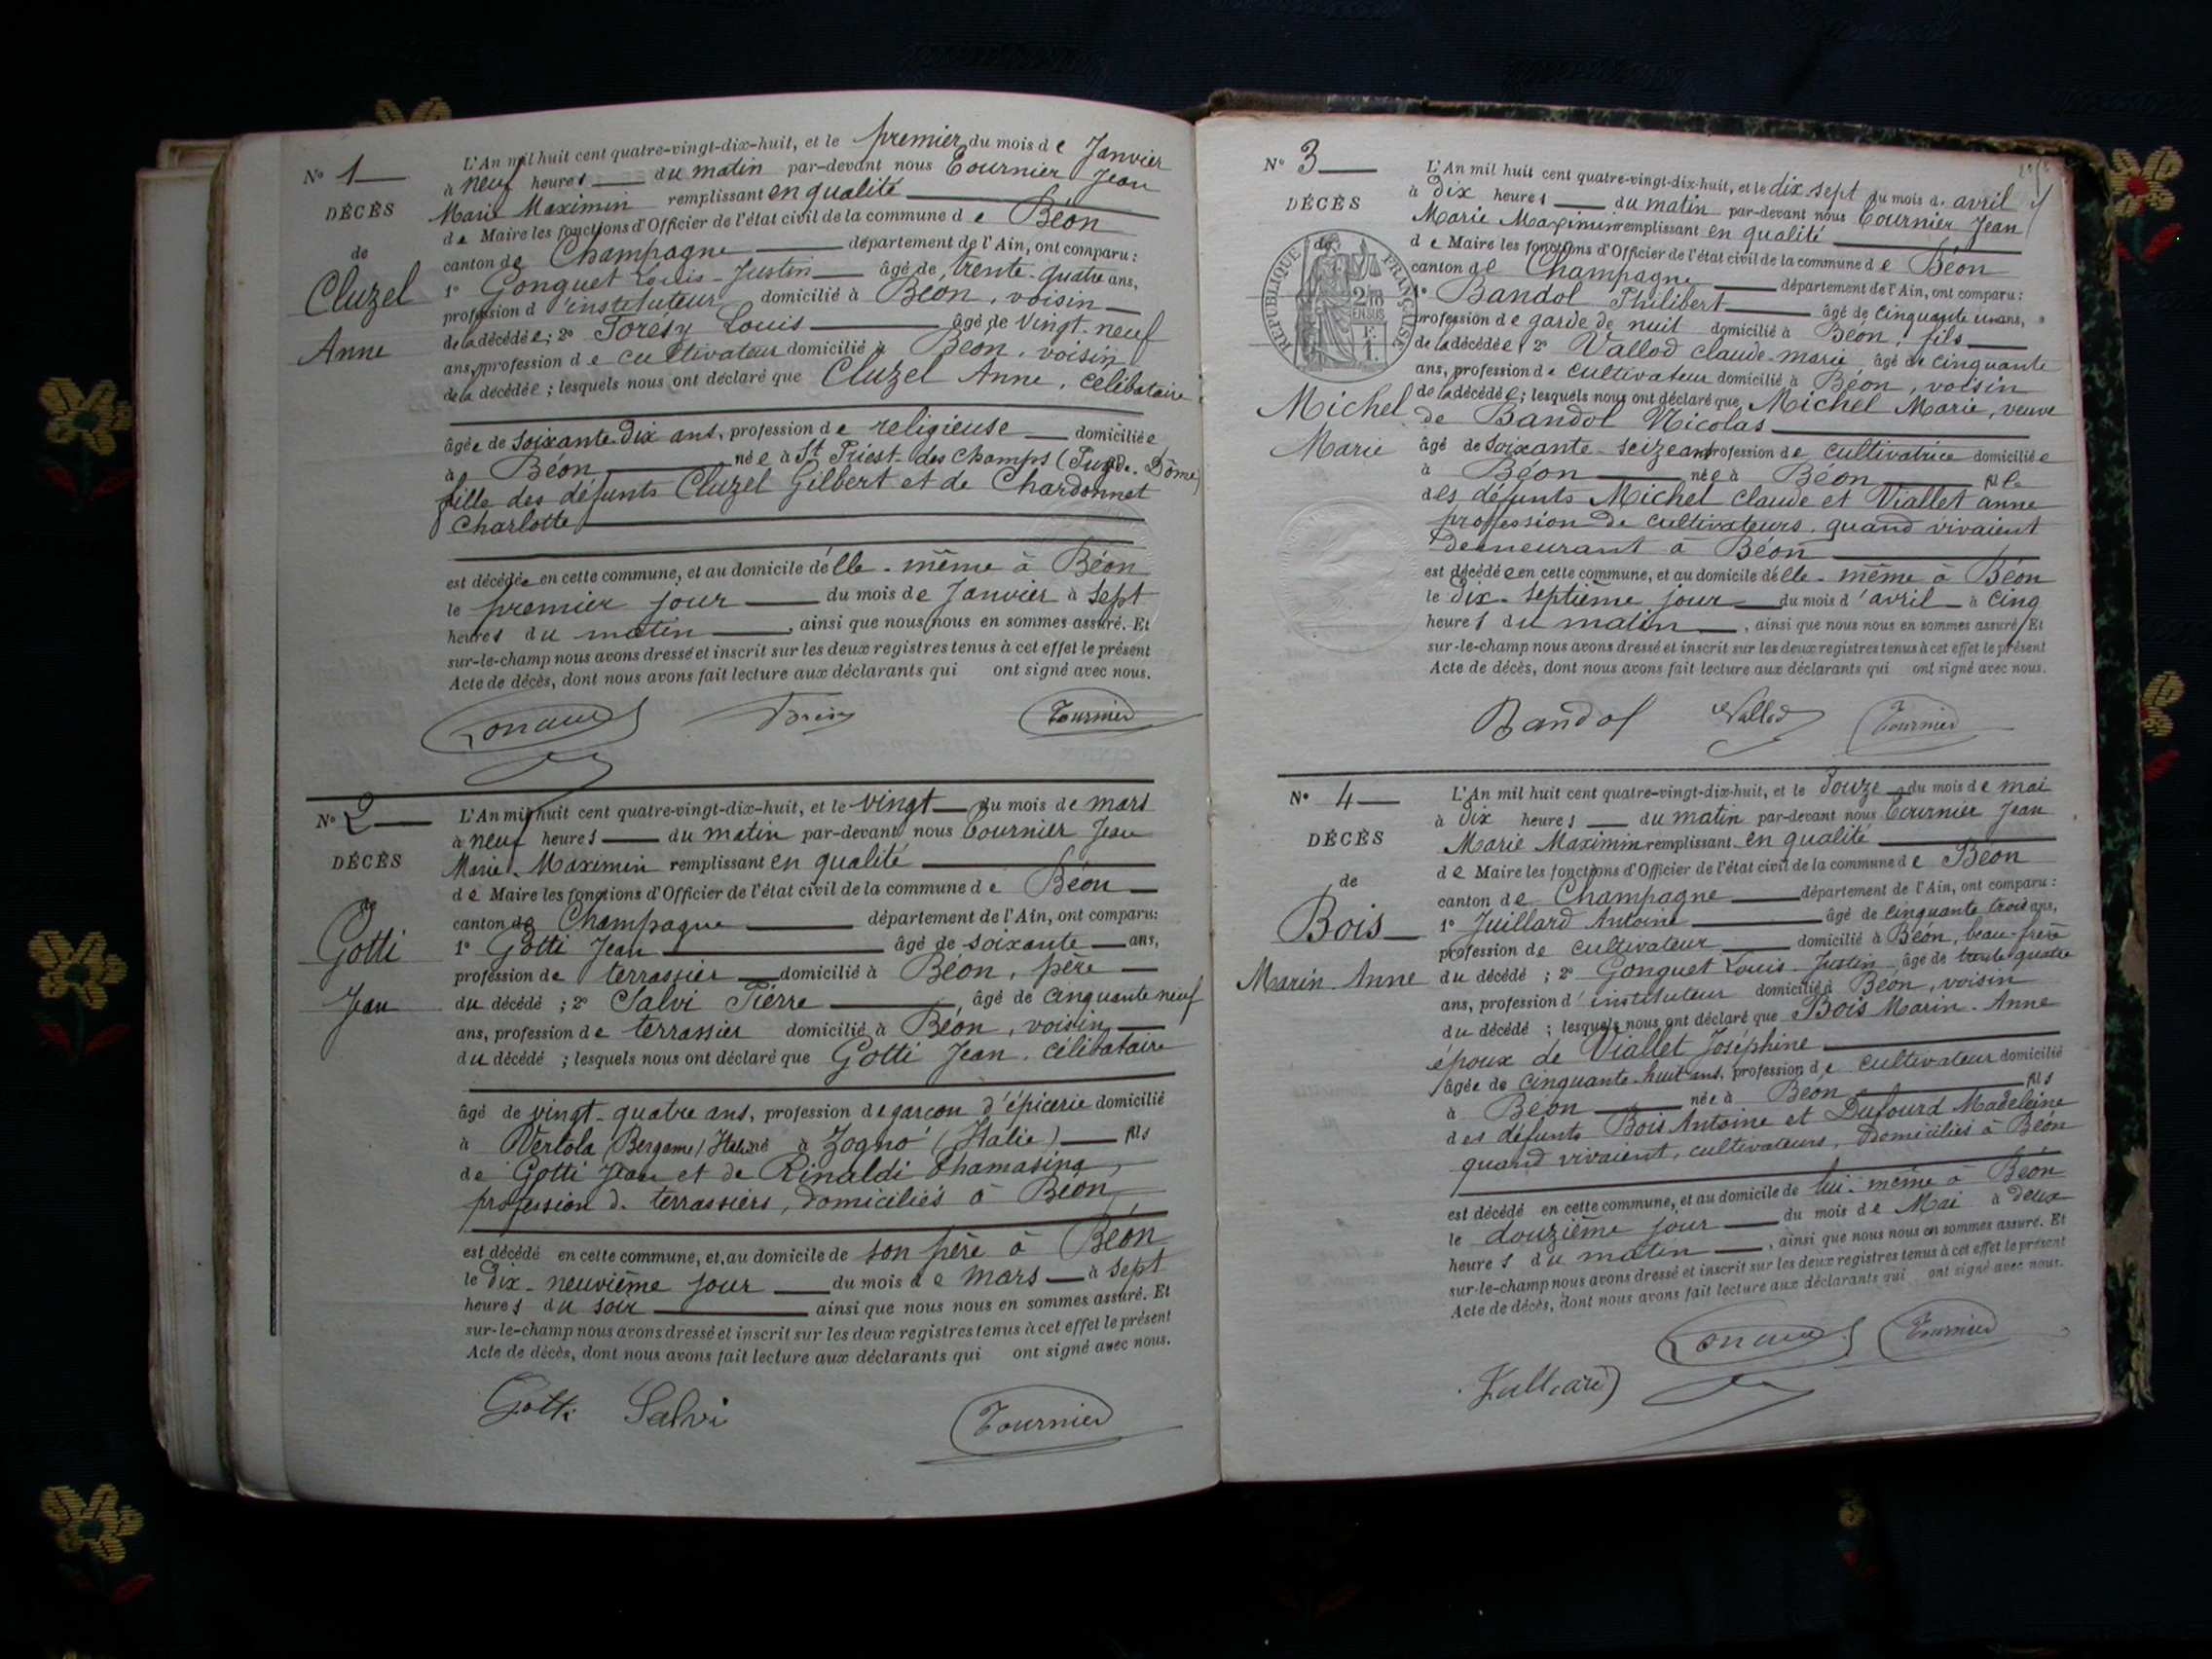 N° 1
DÉCÈS
de
Cluzel
Anne
L'An mil huit cent quatre-vingt-dix-huit, et le premier du mois de Janvier
à neuf heures du matin par-devant nous Tournier Jean
Marie Maximin remplissant en qualité
de Maire les fonctions d'Officier de l'état civil de la commune de Béon
canton de Champagne département de l'Ain, ont comparu :
1° Gonguet Louis-Justin âgé de trente-quatre ans,
profession d'instituteur domicilié à Béon, voisin
de la décédée ; 2° Louis âgé de vingt-neuf
ans, profession de cultivateur domicilié à Béon, voisin
de la décédée ; lesquels nous ont déclaré que Cluzel Anne, célibataire
âgée de soixante-dix ans, profession de religieuse domiciliée
à Béon née à St Priest-des-Champs (Puy-de-Dôme)
fille des défunts Cluzel Gilbert et de Chardonnet
Charlotte
est décédée en cette commune, et au domicile d'elle-même à Béon
le premier jour du mois de Janvier à sept
heures du matin, ainsi que nous nous en sommes assuré. Et
sur-le-champ nous avons dressé et inscrit sur les deux registres tenus à cet effet le présent
Acte de décès, dont nous avons fait lecture aux déclarants qui ont signé avec nous.
Tournier
N° 2
DÉCÈS
de
Gotti
Jean
L'An mil huit cent quatre-vingt-dix-huit, et le vingt du mois de mars
à neuf heures du matin par-devant nous Tournier Jean
Marie-Maximin remplissant en qualité
de Maire les fonctions d'Officier de l'état civil de la commune de Béon
canton de Champagne département de l'Ain, ont comparu:
1° Gotti Jean âgé de soixante ans,
profession de terrassier domicilié à Béon, père
du décédé ; 2° Salvi Pierre, âgé de cinquante neuf
ans, profession de terrassier domicilié à Béon, voisin
du décédé ; lesquels nous ont déclaré que Gotti Jean, célibataire
âgé de vingt-quatre ans, profession de garçon d'épicerie domicilié
à Vertola (Bergame) Italie né à Zogno (Italie) fils
de Gotti Jean et de Rinaldi Thamasina,
profession de terrassiers, domiciliés à Béon
est décédé en cette commune, et au domicile de son père à Béon
le dix-neuvième jour du mois de mars à sept
heures du soir ainsi que nous nous en sommes assuré. Et
sur-le-champ nous avons dressé et inscrit sur les deux registres tenus à cet effet le présent
Acte de décès, dont nous avons fait lecture aux déclarants qui ont signé avec nous.
Gotti Salvi Tournier
N° 3
DÉCÈS
de
RÉPUBLIQUE FRANÇAISE
Michel
Marie
L'An mil huit cent quatre-vingt-dix-huit, et le dix sept du mois d'avril
à dix heures du matin par-devant nous Tournier Jean
Marie Maximin remplissant en qualité
de Maire les fonctions d'Officier de l'état civil de la commune de Béon
canton de Champagne département de l'Ain, ont comparu :
1° Bandol Philibert âgé de cinquante un ans,
profession de garde de nuit domicilié à Béon, fils
de la décédée ; 2° Vallod claude-marie âgé de cinquante
ans, profession de cultivateur domicilié à Béon, voisin
de la décédée ; lesquels nous ont déclaré que Michel Marie, veuve
de Bandol Nicolas
âgé de soixante-seize ans profession de cultivatrice domiciliée
à Béon née à Béon fille
des défunts Michel claude et Viallet anne
profession de cultivateurs, quand vivaient
demeurant à Béon
est décédée en cette commune, et au domicile d'elle-même à Béon
le dix-septième jour du mois d'avril à cinq
heures du matin, ainsi que nous nous en sommes assuré. Et
sur-le-champ nous avons dressé et inscrit sur les deux registres tenus à cet effet le présent
Acte de décès, dont nous avons fait lecture aux déclarants qui ont signé avec nous.
Bandol Vallod Tournier
N° 4
DÉCÈS
de
Bois
Marin-Anne
L'An mil huit cent quatre-vingt-dix-huit, et le douze du mois de mai
à dix heures du matin par-devant nous Tournier Jean
Marie Maximin remplissant en qualité
de Maire les fonctions d'Officier de l'état civil de la commune de Béon
canton de Champagne département de l'Ain, ont comparu :
1° Juillard Antoine âgé de cinquante trois ans,
profession de cultivateur domicilié à Béon, beau-frère
du décédé ; 2° Gonguet Louis-Justin âgé de trente quatre
ans, profession d'instituteur domicilié à Béon, voisin
du décédé ; lesquels nous ont déclaré que Bois Marin-Anne
époux de Viallet Joséphine
âgée de cinquante-huit ans, profession de cultivateur domicilié
à Béon née à Béon fils
des défunts Bois Antoine et Dufourd Madeleine
quand vivaient, cultivateurs, domiciliés à Béon
est décédé en cette commune, et au domicile de lui-même à Béon
le douzième jour du mois de Mai à deux
heures du matin, ainsi que nous nous en sommes assuré. Et
sur-le-champ nous avons dressé et inscrit sur les deux registres tenus à cet effet le présent
Acte de décès, dont nous avons fait lecture aux déclarants qui ont signé avec nous.
Tournier
Juillard